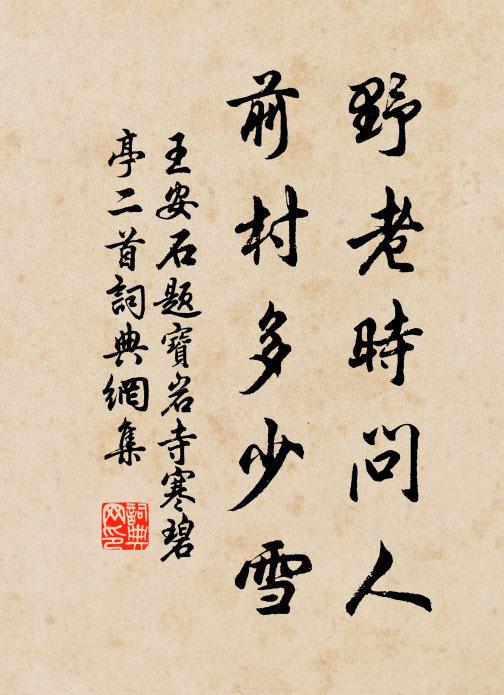 野老時問人
前村多少雪
王安石題寶岩寺寒碧
亭二首詞典網集
詞典
网印